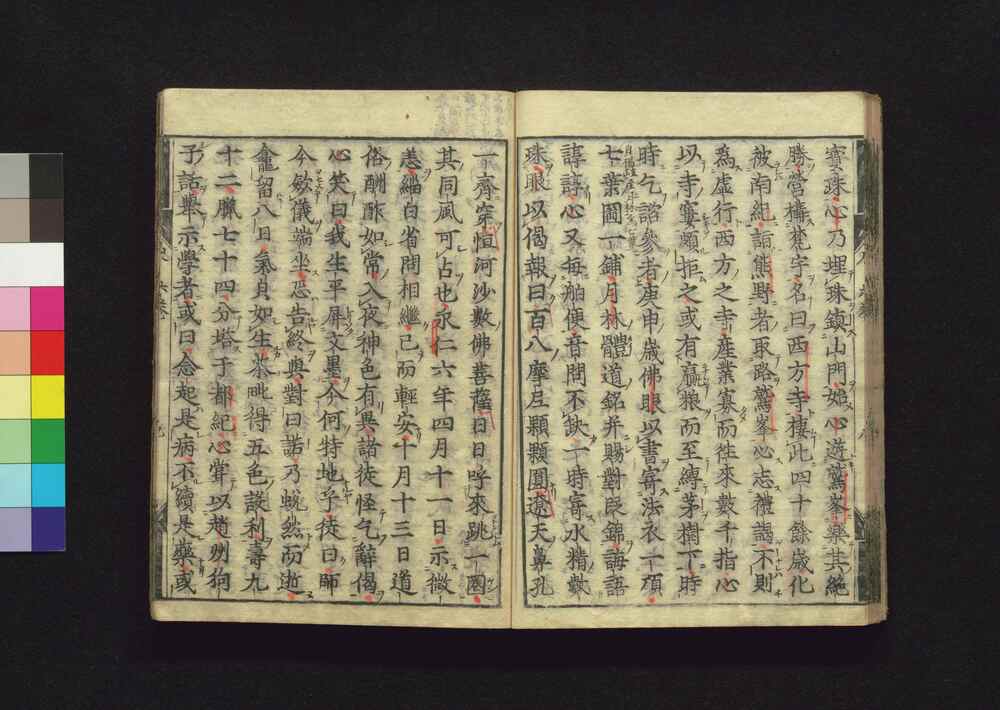 寶珠心乃埋珠鎮山門始心遊鷲峯樂其絕
勝營構梵宇名曰西方寺棲此四十餘歲化
被南紀詣熊野者取路鷲峯心志禮謁不則
爲虛行西方之寺產業寡而徃來數千指心
以寺寠顯拒之或有贏粮而至縛茅樹下時
時乞諮參者庚申歲佛眼以書寄法衣一頂
七葉圖一鋪月林體道銘并賜對臣錦誨語
諄諄心又每舶便音問不缺一時寄水精數
珠眼以偈報曰百八摩尼顆顆圓遼天鼻孔
一齊穿恒河沙數佛菩薩日日呼來跳一圈
其同風可占也永仁六年四月十一日示微
恙緇白省問相繼己而輕安十月十三日道
俗酬酢如常入夜神色有異諸徒怪乞辭偈
心笑曰我生平屏文墨今何特地予徒曰師
今斂儀端坐忍告終與對曰諾乃蛻然而逝
龕留八日氣貌如生茶毗得五色設利壽九
十二臘七十四分塔于都紀心甞以趙州狗
子話擧示學者或曰念起是病不續是藥或